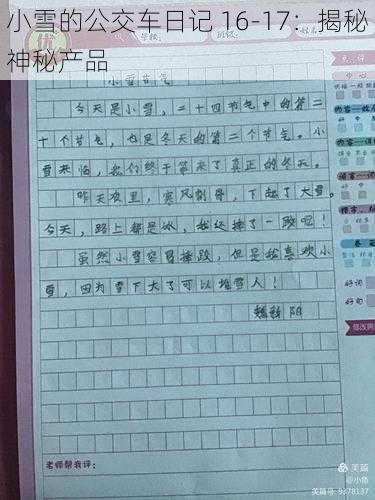 小雪的公交车日记 16-17：揭秘
神秘产品
小雪节气
今天是小雪，二十四节气中的第二
十个节气，也是冬天的第二个节气。小
雪来临，我们终于等来了真正的冬天。
昨天夜里，寒风刺骨，下起了大雪。
今天，路上都是冰，我还摔了一跤呢！
虽然小雪容易摔跤，但是我喜欢小
雪，因为雪下大了可以堆雪人！
老师帮我评：
好词
好句
修改
美篇
@小伟
美篇号: 9378137